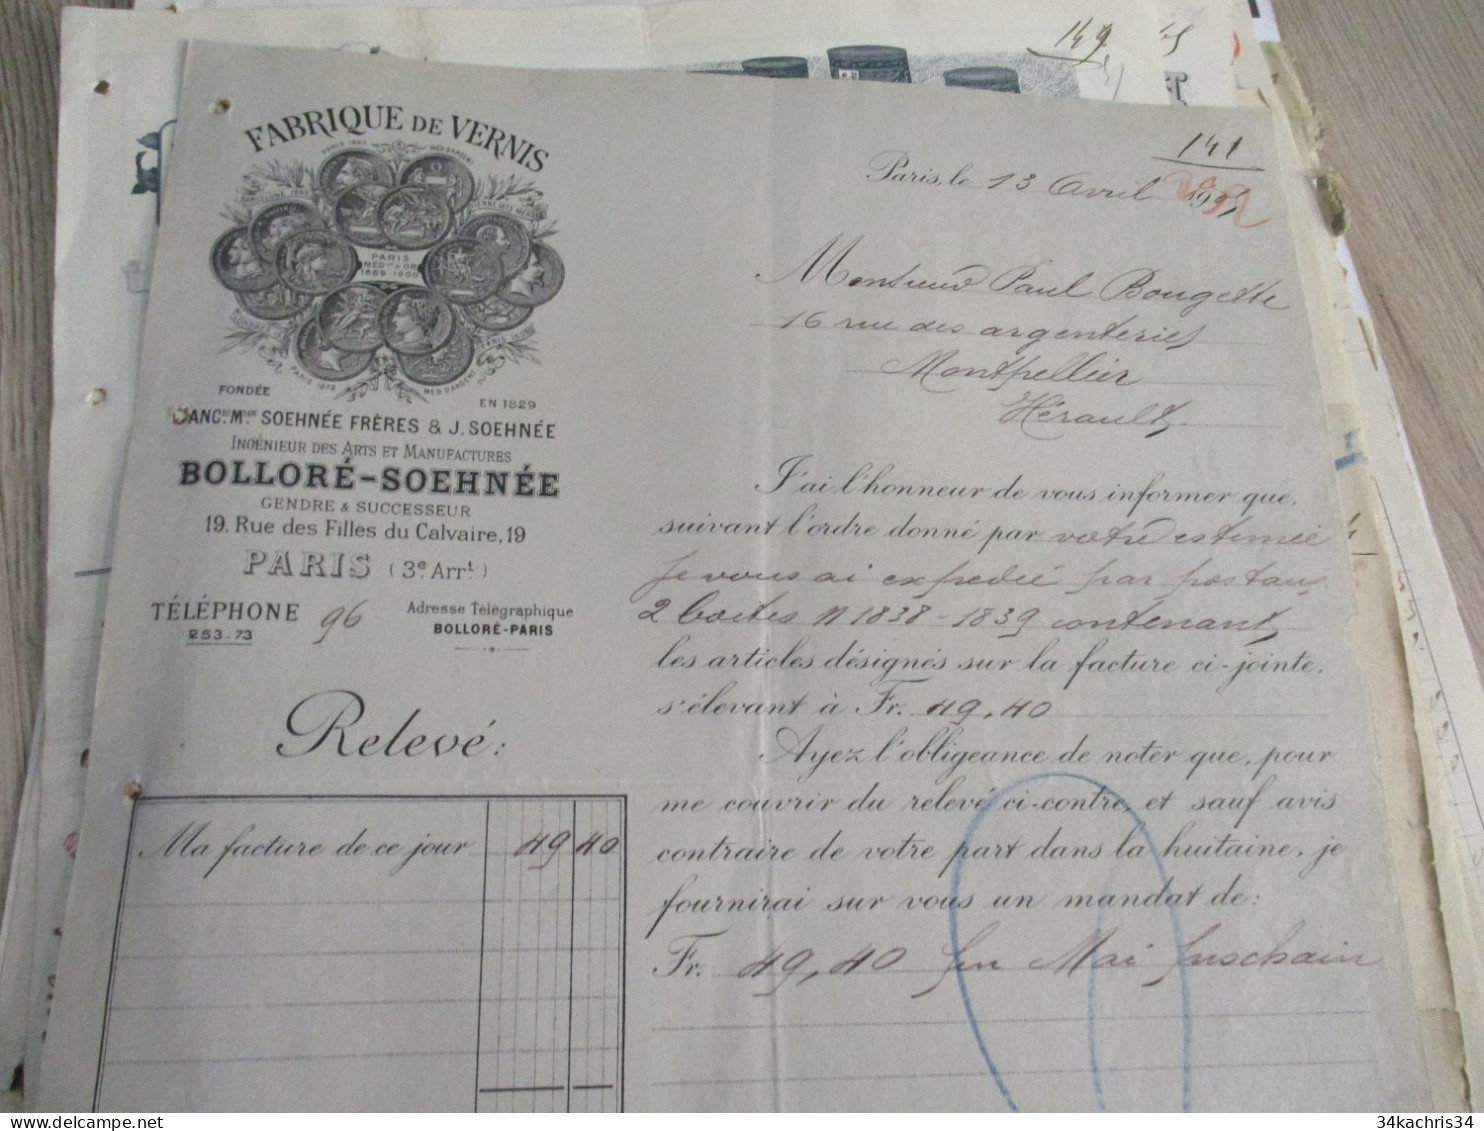 149
141
FABRIQUE DE VERNIS
PARIS 1867
MED. D'ARGENT
BARCELONE
PARIS
MED. D'OR
1889-1900
PARIS 1878
MED. D'ARGENT
FONDÉE
EN 1829
ANC. MON SOEHNÉE FRÈRES & J. SOEHNÉE
INGÉNIEUR DES ARTS ET MANUFACTURES
BOLLORÉ-SOEHNÉE
GENDRE & SUCCESSEUR
19. Rue des Filles du Calvaire, 19
PARIS (3e Arrt.)
TÉLÉPHONE
253.73
96
Adresse Télégraphique
BOLLORÉ-PARIS
Paris, le 13 Avril
Monsieur Paul Bougette
16 rue des argenteries
Montpellier
Hérault
J'ai l'honneur de vous informer que,
suivant l'ordre donné par votre estimée
je vous ai expédié par postaux
2 boites n 1838-1839 contenant
les articles désignés sur la facture ci-jointe,
s'élevant à Fr. 49,40
Ayez l'obligeance de noter que, pour
me couvrir du relevé ci-contre, et sauf avis
contraire de votre part dans la huitaine, je
fournirai sur vous un mandat de:
Fr. 49,40 fin Mai prochain
Relevé:
Ma facture de ce jour 49 40
34kachris34